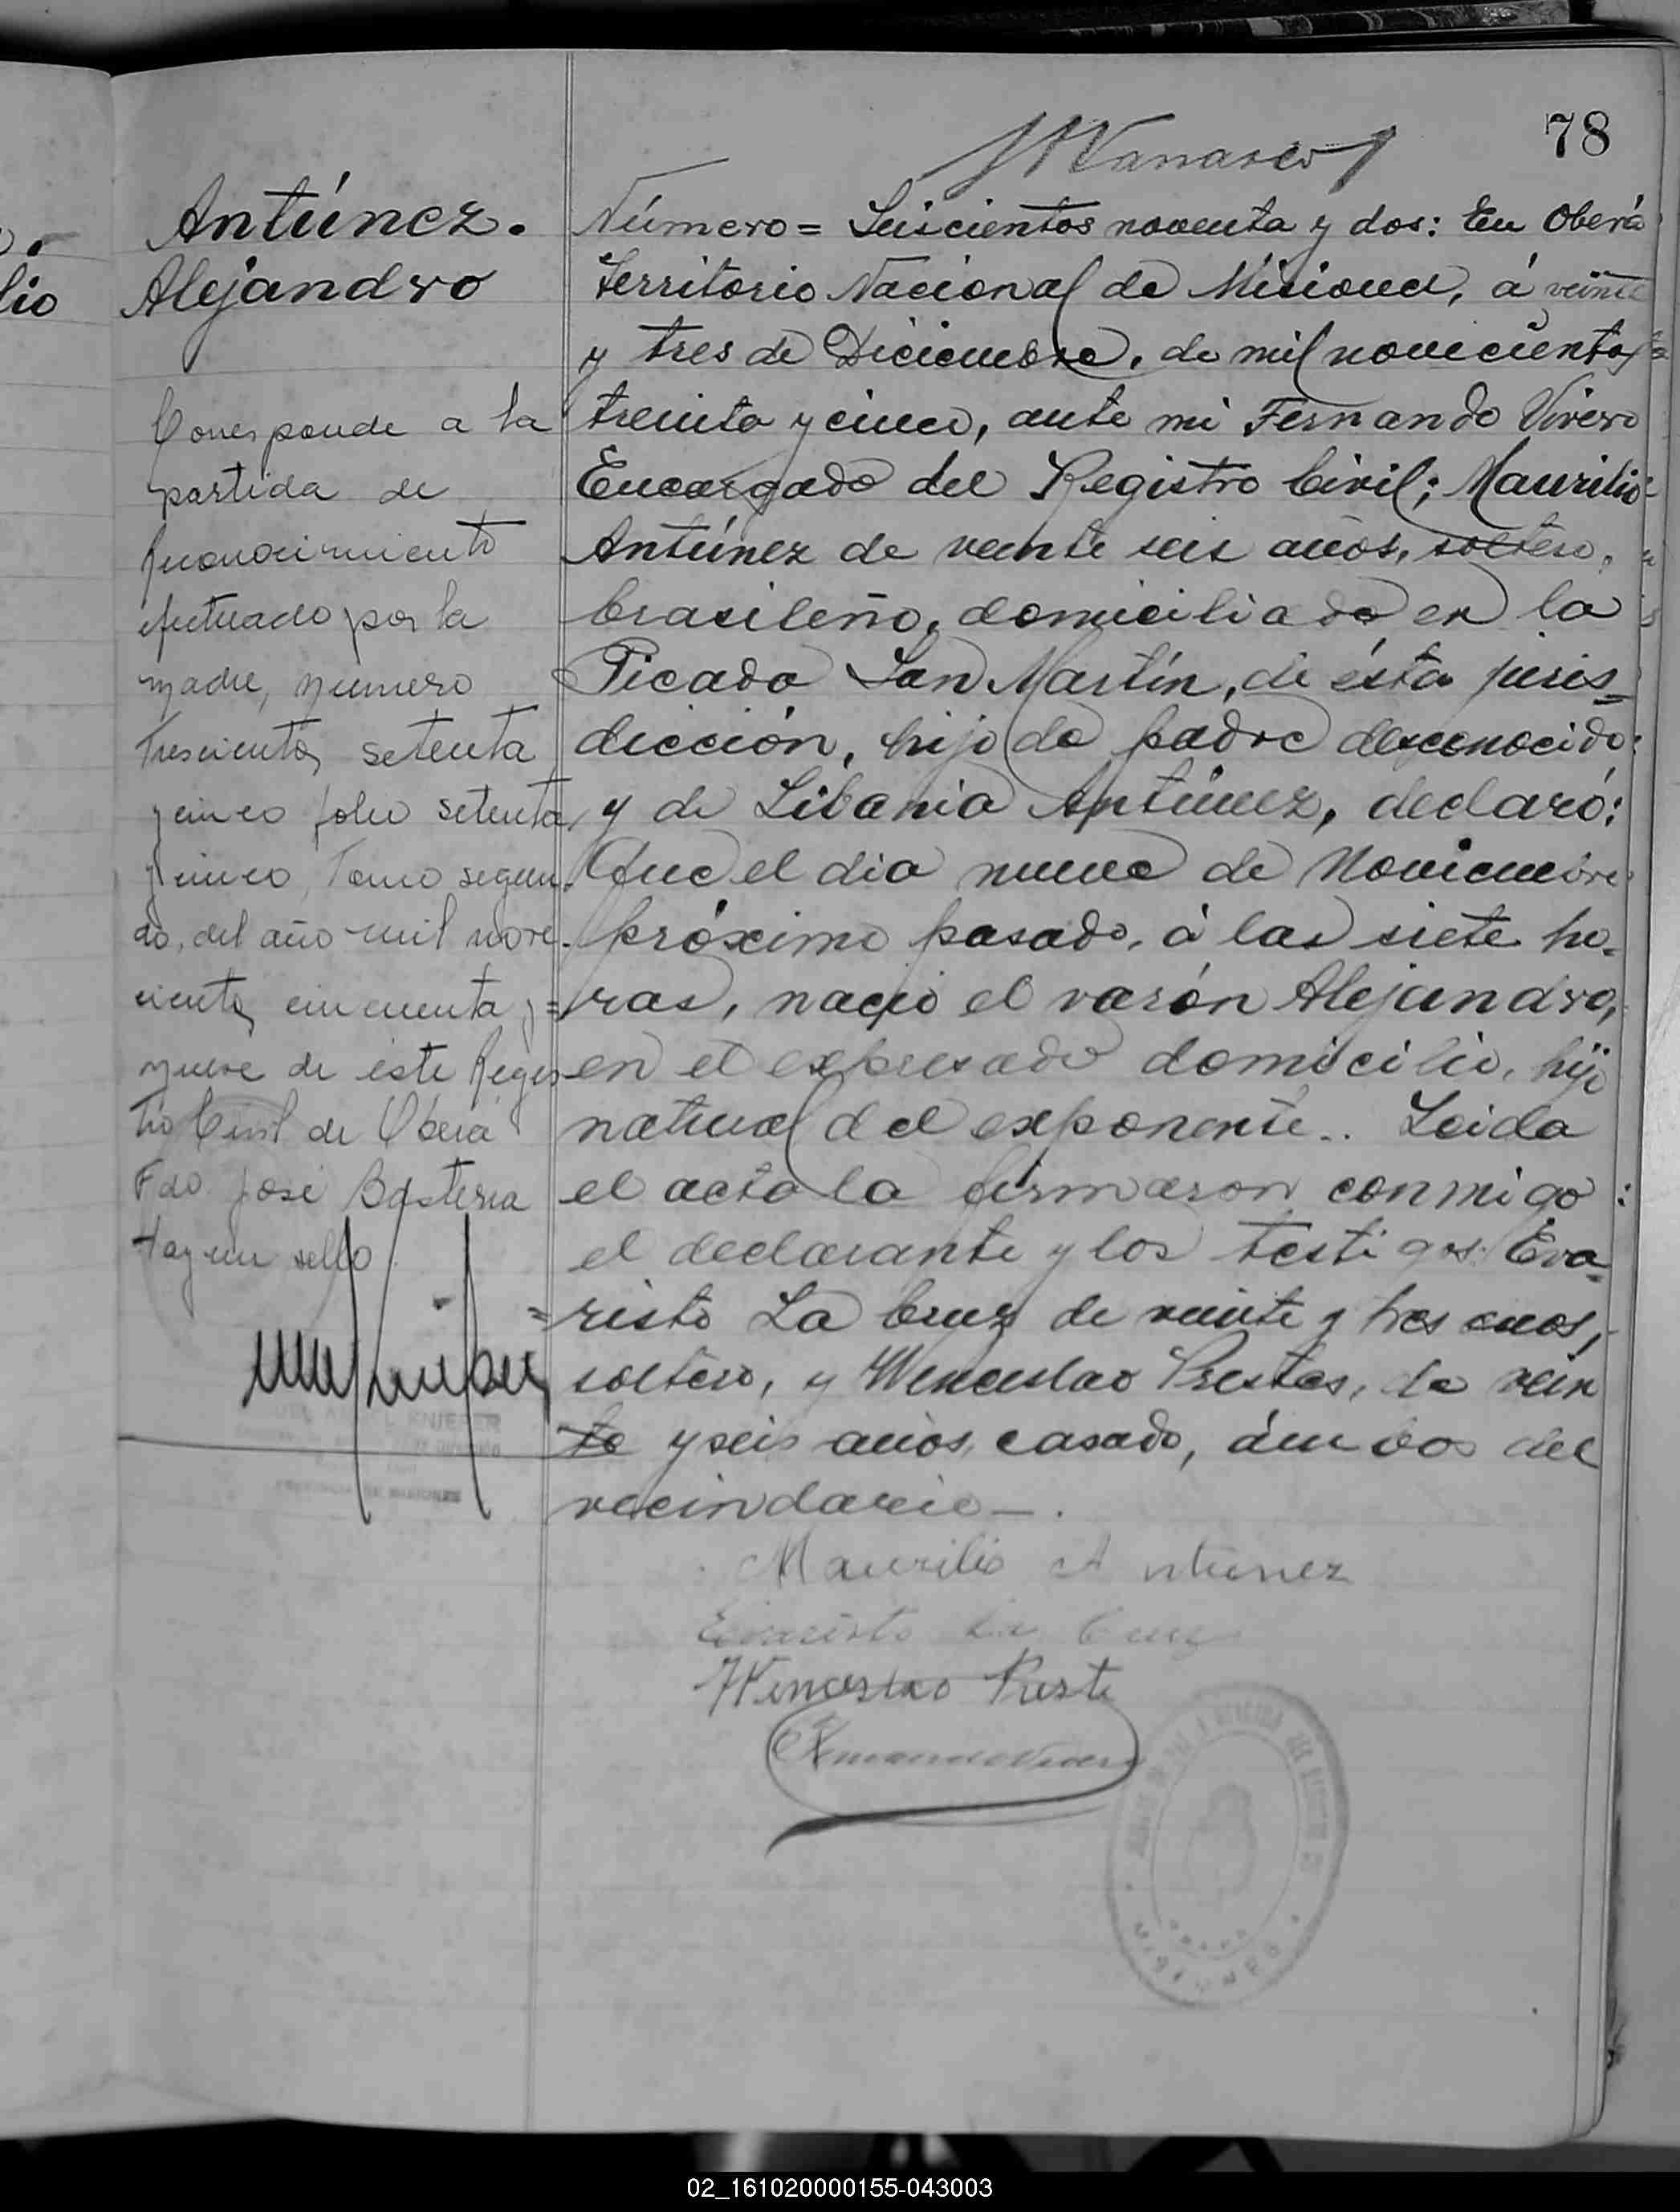 78
Antúnez.
Alejandro
Corresponde a la
partida de
reconocimiento
efectuado por la
madre, número
trescientos setenta
y cinco folio setenta
y cinco, Tomo segun-
do, del año mil nove-
cientos cincuenta y=
nueve de este Regis
tro Civil de Oberá
Fdo José
Hay un sello
Número = Seiscientos noventa y dos: En Oberá
Territorio Nacional de Misiones, á veinte
y tres de Diciembre, de mil novecientos
treinta y cinco, ante mi Fernando Vivero
Encargado del Registro Civil; Maurilio
Antúnez de veinte seis años, soltero,
brasileño, domiciliado en la
Picada San Martín, de ésta juris=
dicción, hijo de padre desconocido
y de Libania Antúnez, declaró:
Que el dia nueve de Noviembre
próximo pasado, á las siete ho=
ras, nació el varón Alejandro,
en el expresado domicilio, hijo
natural del exponente.. Leida
el acta la firmaron conmigo:
el declarante y los testigos: Eva=
=risto La Cruz de veinte y tres años,
soltero, y Wenceslao Prestes, de vein
te y seis años, casado, ámbos del
vecindario—.
Maurilio Antunez
Evaristo La Cruz
Wenceslao Preste
Fernando Vivero
MISIONES
02_161020000155-043003